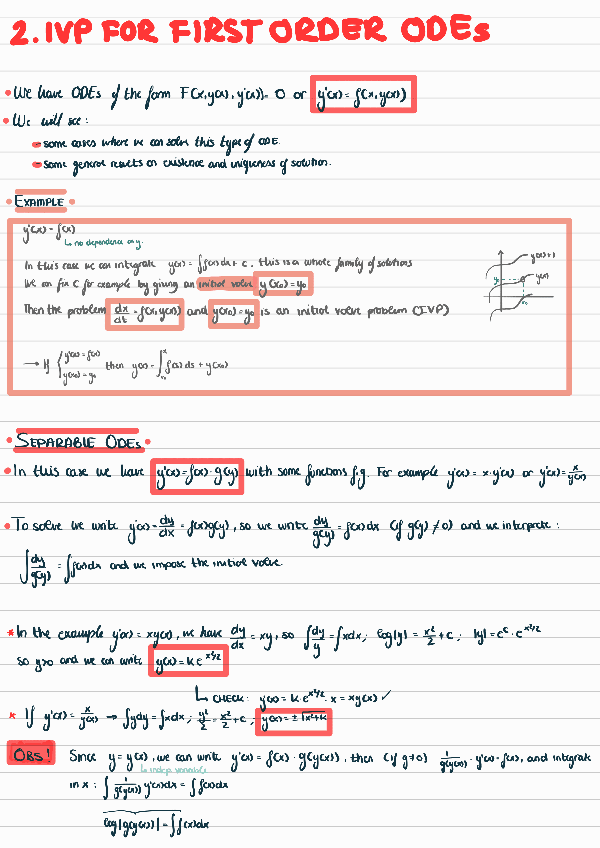 2. IVP FOR FIRST ORDER ODEs
• We have ODEs of the form F(x,y(x),y'(x))= 0 or y'(x) = f(x,y(x))
• We will see:
– some cases where we can solve this type of ODE.
– some general results on existence and uniqueness of solution.
• EXAMPLE •
y'(x) = f(x)
↳ no dependence on y.
In this case we can integrate y(x) = ∫f(x)dx + C, this is a whole family of solutions
We can fix C for example by giving an initial value y(x₀) = y₀
Then the problem dx/dt = f(x,y(x)) and y(x₀) = y₀ is an initial value problem (IVP)
y(x)+1
y(x)
y₀
x₀
→ If { y'(x) = f(x) y(x₀) = y₀ then y(x) = ∫_{x₀}^{x} f(s) ds + y(x₀)
• SEPARABLE ODEs •
• In this case we have y'(x) = f(x) · g(y) with some functions f,g. For example y'(x) = x·y(x) or y'(x) = x/y(x)
• To solve we write y'(x) = dy/dx = f(x)g(y), so we write dy/g(y) = f(x)dx (if g(y) ≠ 0) and we interprete:
∫dy/g(y) = ∫f(x)dx and we impose the initial value.
* In the example y'(x) = xy(x), we have dy/dx = xy, so ∫dy/y = ∫xdx; log|y| = x²/2 + c; |y| = e^c · e^{x²/2}
so y>0 and we can write y(x) = K e^{x²/2}
↳ CHECK: y'(x) = K e^{x²/2} · x = xy(x) ✓
* If y'(x) = x/y(x) → ∫ydy = ∫xdx; y²/2 = x²/2 + c; y(x) = ± √x²+K
OBS! Since y = y(x), we can write y'(x) = f(x) · g(y(x)), then (if g≠0) 1/g(y(x)) · y'(x) = f(x), and integrate
↳ indep. variable
in x : ∫ 1/g(y(x)) y'(x)dx = ∫f(x)dx
log|g(y(x))| = ∫f(x)dx